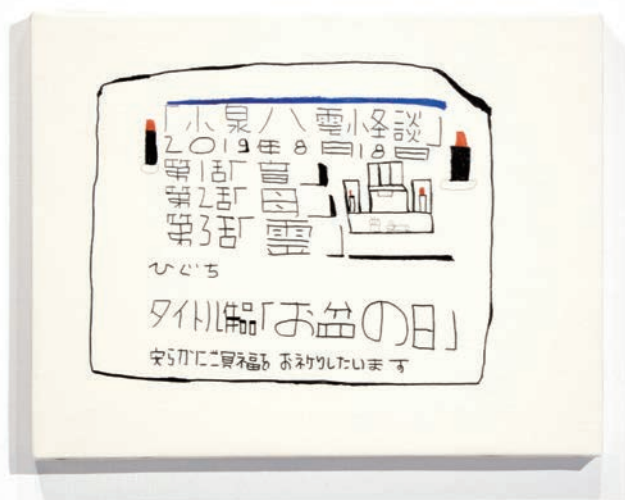 「小泉八雲怪談」
2019年8月18日
第1話「音」
第2話「母」
第3話「霊」
ひぐち
タイトル作品「お盆の日」
安らかにご冥福をお祈りしたいます